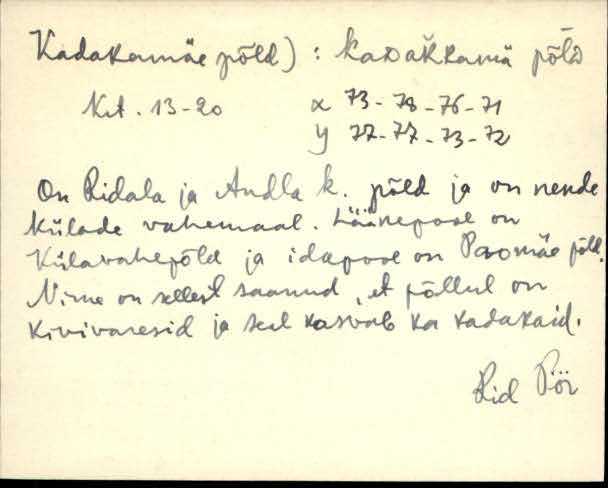 Kadakamäe põld) : kaᴅak̆kamä põlᴅ
Krt. 13-20 x 73-78-76-71
y 77-77-73-72
On Ridala ja Andla k. põld ja on nende
külade vahemaal. Läänepool on
Külavahepõld ja idapool on Paomäe põld.
Nime on sellest saanud, et põllul on
kivivaresid ja seal kasvab ka kadakaid.
Rid Pör